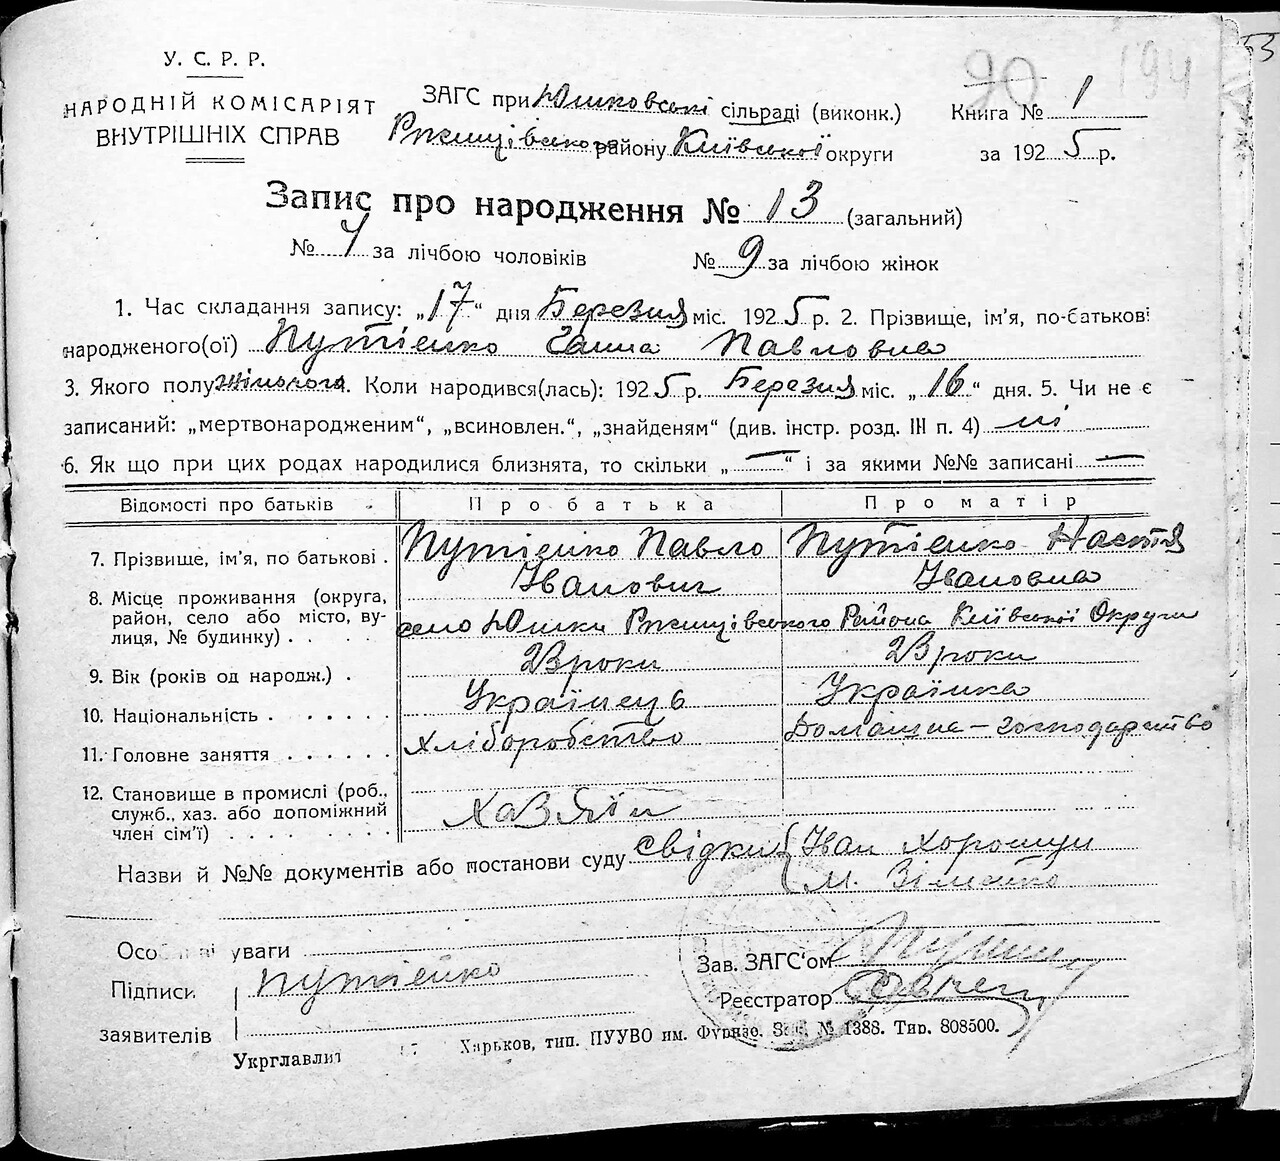 53
90 194
У. С. Р. Р.
НАРОДНІЙ КОМІСАРІЯТ
ВНУТРІШНІХ СПРАВ
ЗАГС при Юшковській сільраді (виконк.)
Ржищівського району Київської округи
Книга № 1
за 1925 р.
Запис про народження № 13 (загальний)
№ 4 за лічбою чоловіків № 9 за лічбою жінок
1. Час складання запису: „17“ дня Березня міс. 1925 р. 2. Прізвище, ім'я, по-батькові
народженого(ої) Путієнко Ганна Павловна
3. Якого полу жіночого. Коли народився(лась): 1925 р. Березня міс. „16“ дня. 5. Чи не є
записаний: „мертвонародженим“, „всиновлен.“, „знайденям“ (див. інстр. розд. III п. 4) ні
6. Як що при цих родах народилися близнята, то скільки „—“ і за якими №№ записані —
Відомості про батьків Про батька Про матір
7. Прізвище, ім'я, по батькові . Путієнко Павло Іванович Путієнко Настя Івановна
8. Місце проживання (округа, район, село або місто, вулиця, № будинку) . . село Юшки Ржищівського Района Київської Округи
9. Вік (років од народж.) . 23 роки 23 роки
10. Національність . . . . . . . Українець Українка
11. Головне заняття . . . . . . Хліборобство Домашнє-господарство
12. Становище в промислі (роб., служб., хаз. або допоміжний член сім'ї) . . . . . . . . Хазяїн
Назви й №№ документів або постанови суду свідки { Іван Хорошун
М.
Особливі уваги
Підписи Путієнко
заявителів
Зав. ЗАГС'ом
Реєстратор
Укрглавліт Харьков, тип. ПУУВО им. Фрунзе. Зак. № 1388. Тир. 808500.